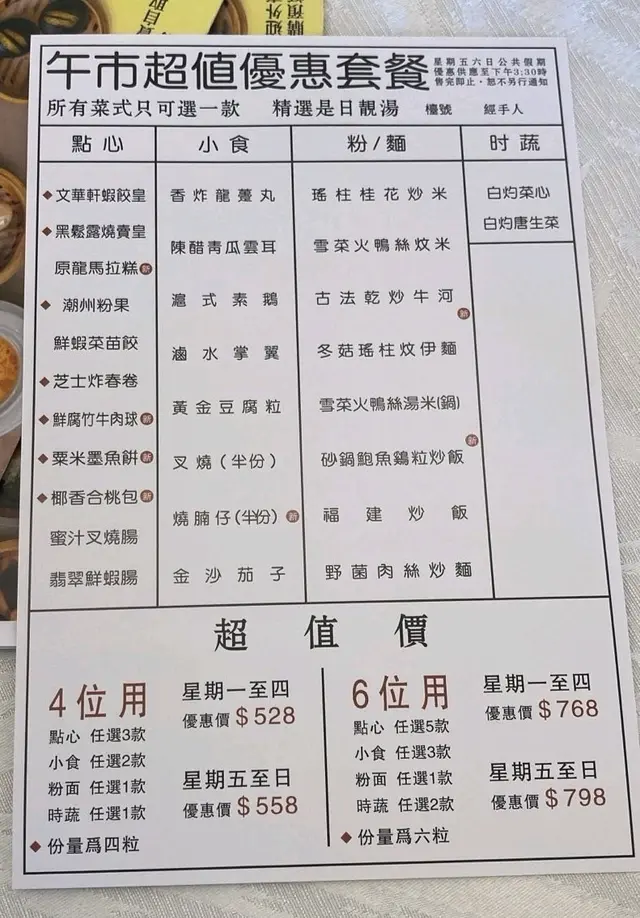 午市超值優惠套餐
星期五六日公共假期
優惠供應至下午3:30時
售完即止，恕不另行通知
所有菜式只可選一款 精選是日靚湯 檯號 經手人
點心
◆文華軒蝦餃皇
◆黑鬆露燒賣皇
原龍馬拉糕 新
◆潮州粉果
鮮蝦菜苗餃
◆芝士炸春卷
◆鮮腐竹牛肉球 新
◆粟米墨魚餅 新
◆椰香合桃包 新
蜜汁叉燒腸
翡翠鮮蝦腸
小食
香炸龍躉丸
陳醋青瓜雲耳
滬式素鵝
滷水掌翼
黃金豆腐粒
叉燒(半份)
燒腩仔(半份) 新
金沙茄子
粉/麵
瑤柱桂花炒米
雪菜火鴨絲炆米
古法乾炒牛河
新
冬菇瑤柱炆伊麵
雪菜火鴨絲湯米(鍋)
新
砂鍋鮑魚鷄粒炒飯
福建炒飯
野菌肉絲炒麵
时蔬
白灼菜心
白灼唐生菜
超值價
4位用
點心 任選3款
小食 任選2款
粉面 任選1款
時蔬 任選1款
◆份量爲四粒
星期一至四
優惠價$528
星期五至日
優惠價$558
6位用
點心 任選5款
小食 任選3款
粉面 任選1款
時蔬 任選2款
◆份量爲六粒
星期一至四
優惠價$768
星期五至日
優惠價$798